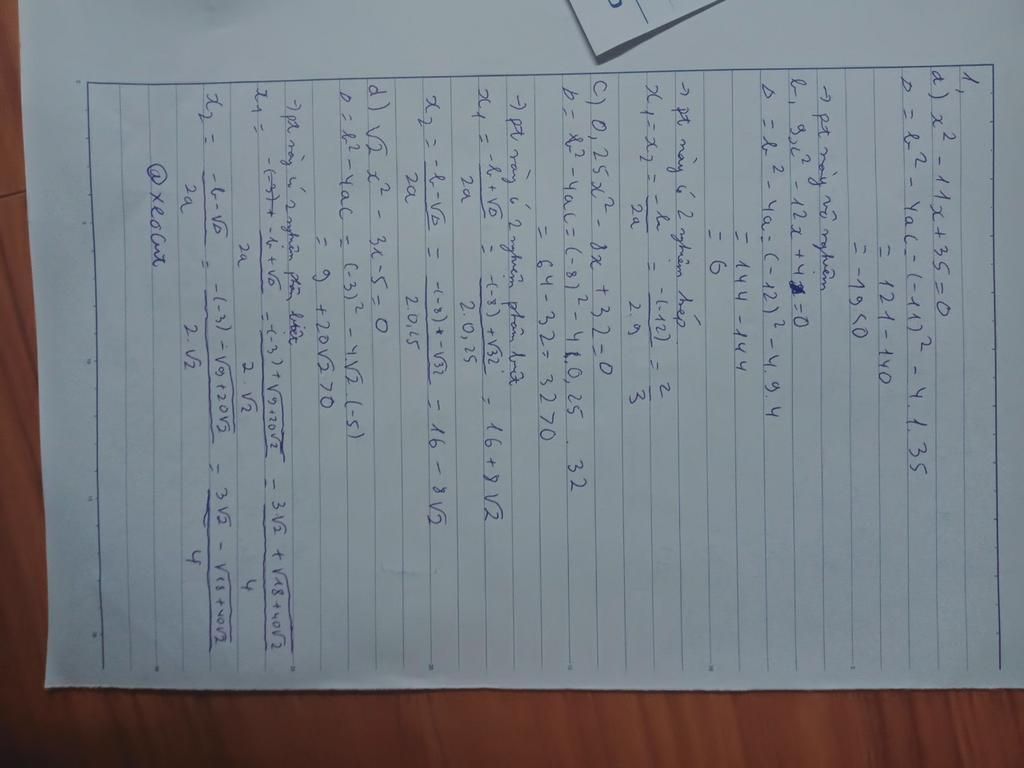 1,
a) x² - 11x + 35 = 0
Δ = b² - 4ac = (-11)² - 4.1.35
= 121 - 140
= -19 < 0
→ pt này vô nghiệm
b, 9x² - 12x + 4 = 0
Δ = b² - 4ac = (-12)² - 4.9.4
= 144 - 144
= 0
→ pt này có 2 nghiệm kép
x₁ = x₂ = -b/2a = -(-12)/2.9 = 2/3
c) 0,25x² - 8x + 32 = 0
Δ = b² - 4ac = (-8)² - 4.0,25 . 32
= 64 - 32 = 32 > 0
→ pt này có 2 nghiệm phân biệt
x₁ = -b + √Δ/2a = -(-8) + √32/2.0,25 = 16 + 8√2
x₂ = -b - √Δ/2a = -(-8) - √32/2.0,25 = 16 - 8√2
d) √2 x² - 3x - 5 = 0
Δ = b² - 4ac = (-3)² - 4.√2.(-5)
= 9 + 20√2 > 0
→ pt này có 2 nghiệm phân biệt
x₁ = -b + √Δ/2a = -(-3) + √9+20√2/2.√2 = 3√2 + √18+40√2/4
x₂ = -b - √Δ/2a = -(-3) - √9+20√2/2.√2 = 3√2 - √18+40√2/4